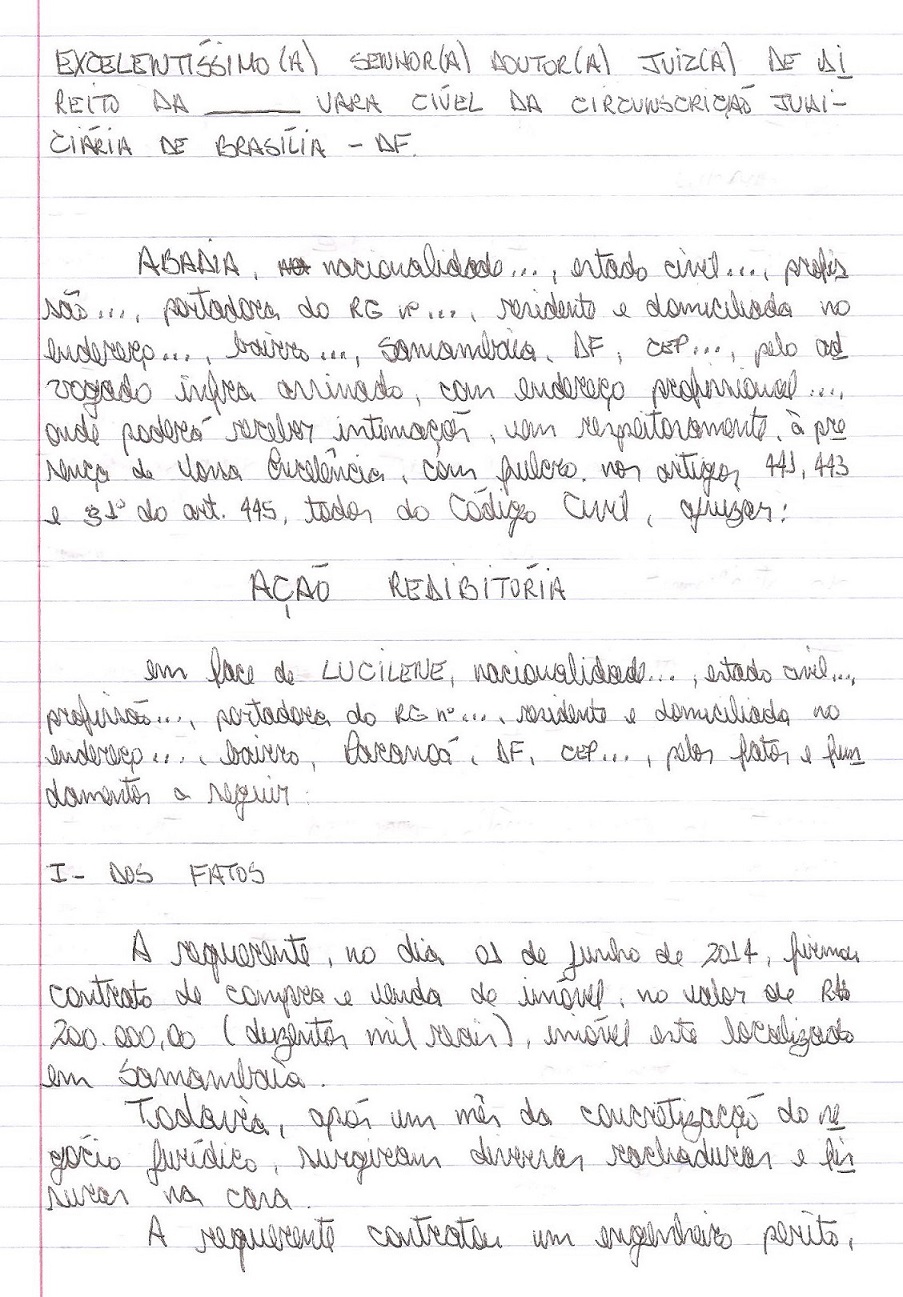 EXCELENTÍSSIMO(A) SENHOR(A) DOUTOR(A) JUIZ(A) DE DI
REITO DA ______ VARA CÍVEL DA CIRCUNSCRIÇÃO JUDI-
CIÁRIA DE BRASÍLIA - DF.
ABADIA, nacionalidade..., estado civil..., profis
são..., portadora do RG nº..., residente e domiciliada no
endereço..., bairro..., Samambaia, DF, CEP..., pelo ad
vogado infra assinado, com endereço profissional...,
onde poderá receber intimação, vem respeitosamente, à pre
sença de Vossa Excelência, com fulcro nos artigos 441, 443
e §1º do art. 445, todos do Código Civil, ajuizar:
AÇÃO REDIBITÓRIA
em face de LUCILENE, nacionalidade..., estado civil...,
profissão..., portadora do RG nº..., residente e domiciliada no
endereço..., bairro, Paranoá, DF, CEP..., pelos fatos e fun
damentos a seguir:
I- DOS FATOS
A requerente, no dia 01 de junho de 2014, firmou
contrato de compra e venda de imóvel, no valor de R$
200.000,00 (duzentos mil reais), imóvel este localizado
em Samambaia.
Todavia, após um mês da concretização do ne
gócio jurídico, surgiram diversas rachaduras e fis
suras na casa.
A requerente contratou um engenheiro perito,